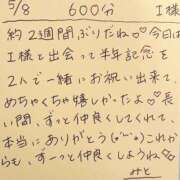 5/8　600分　I様
約2週間ぶりだね♡今日は
I様と出会って半年記念を
2人で一緒にお祝い出来て、
めちゃくちゃ嬉しかったよ♡長
い間、ずっと仲良くしてくれて、
本当にありがとう(*^^*)これか
らも、ずっと仲良くしようね
みと